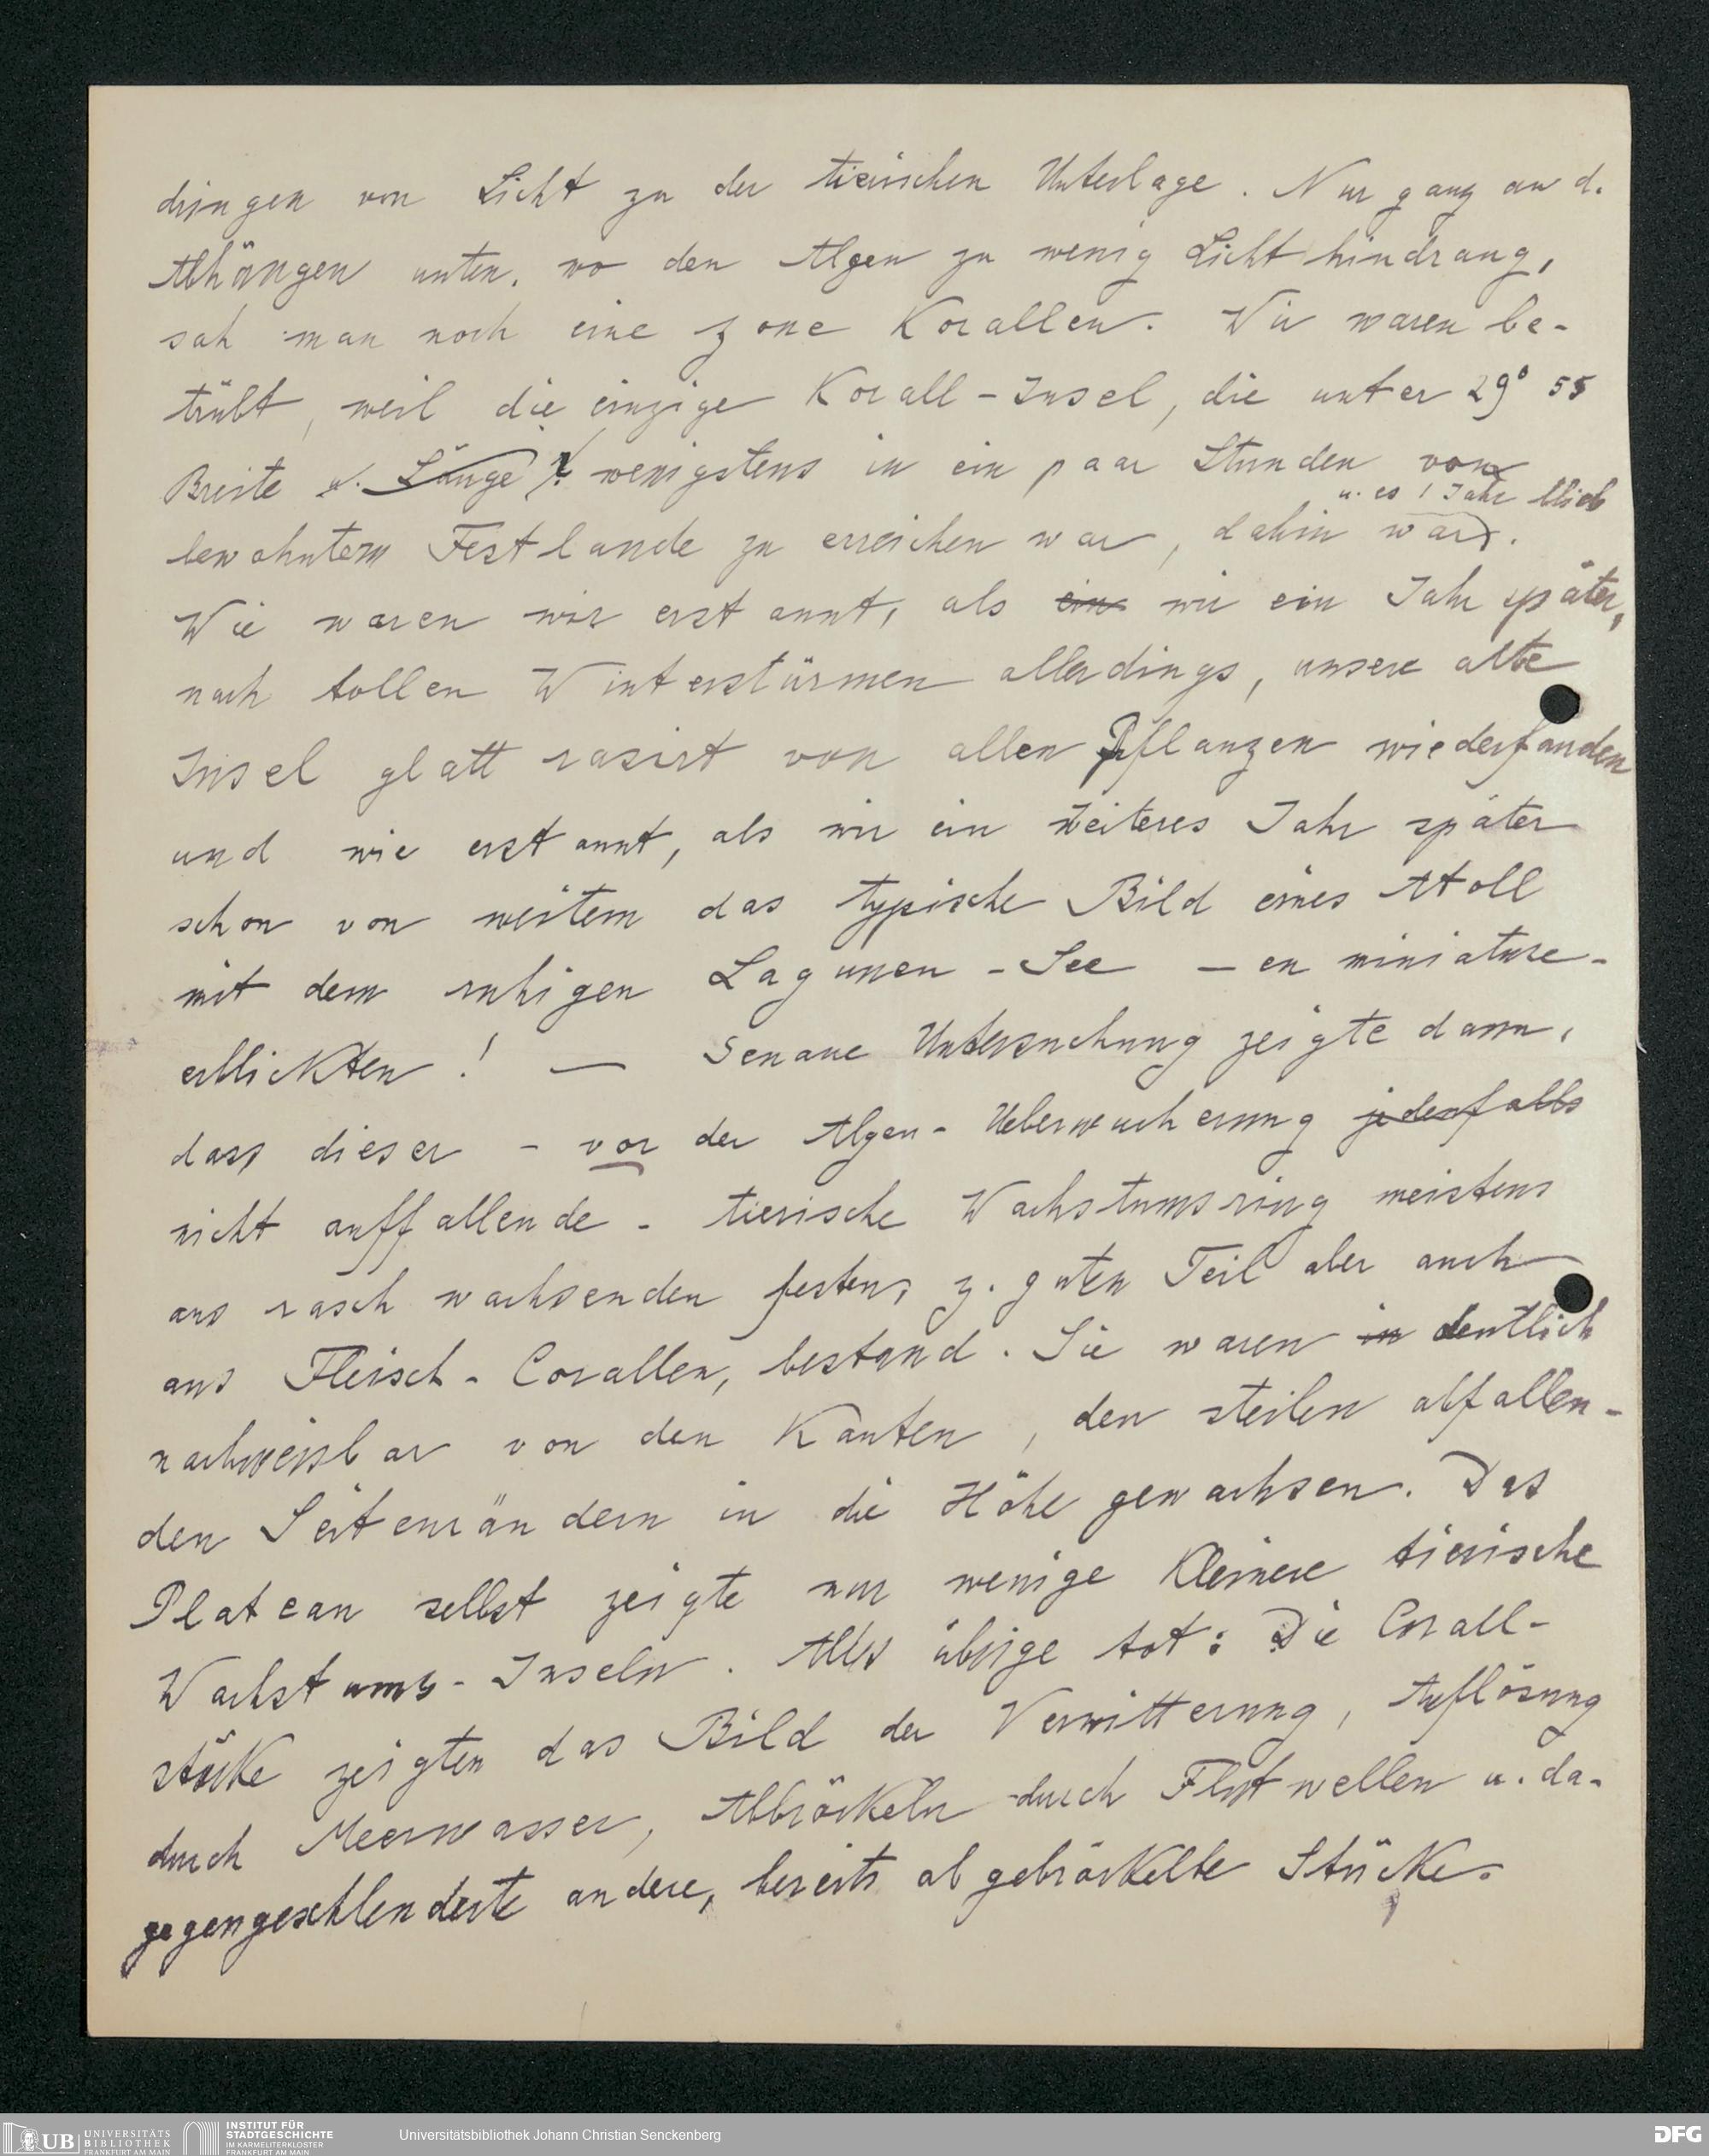 dringen von Licht zu der tierischen Unterlage. Nur ganz an d.
Abhängen unten, wo den Algen zu wenig Licht hindrang,
sah man noch eine Zone Korallen. Wir waren be-
trübt, weil die einzige Korall-Insel, die unter 29° 55
Breite u. Länge ?. wenigstens in ein paar Stunden von
u. es 1 Jahr blieb
bewohntem Festlande zu erreichen war, dahin war.
Wie waren wir erstaunt, als ein wir ein Jahr später,
nach tollen Winterstürmen allerdings, unsere alte
Insel glatt rasirt von allen Pflanzen wiederfanden
und wie erstaunt, als wir ein weiteres Jahr später
schon von weitem das typische Bild eines Atoll
mit dem ruhigen Lagunen-See — en miniature-
erblickten! — Genaue Untersuchung zeigte dann,
dass dieser - vor der Algen-Ueberwucherung jedenfalls
nicht auffallende - tierische Wachstumsring meistens
aus rasch wachsenden festen, z. guten Teil aber auch
aus Fleisch-Corallen, bestand. Sie waren in deutlich
nachweisbar von den Kanten, den steilen abfallen-
den Seitenrändern in die Höhe gewachsen. Das
Plateau selbst zeigte nur wenige kleinere tierische
Wachstums-Inseln. Alles übrige tot: Die Corall-
stücke zeigten das Bild der Verwitterung, Auflösung
durch Meerwasser, Abbröckeln durch Flutwellen u. da-
gegengeschleuderte andere, bereits abgebröckelte Stücke.
UB UNIVERSITÄTS
BIBLIOTHEK
FRANKFURT AM MAIN
INSTITUT FÜR
STADTGESCHICHTE
IM KARMELITERKLOSTER
FRANKFURT AM MAIN
Universitätsbibliothek Johann Christian Senckenberg
DFG